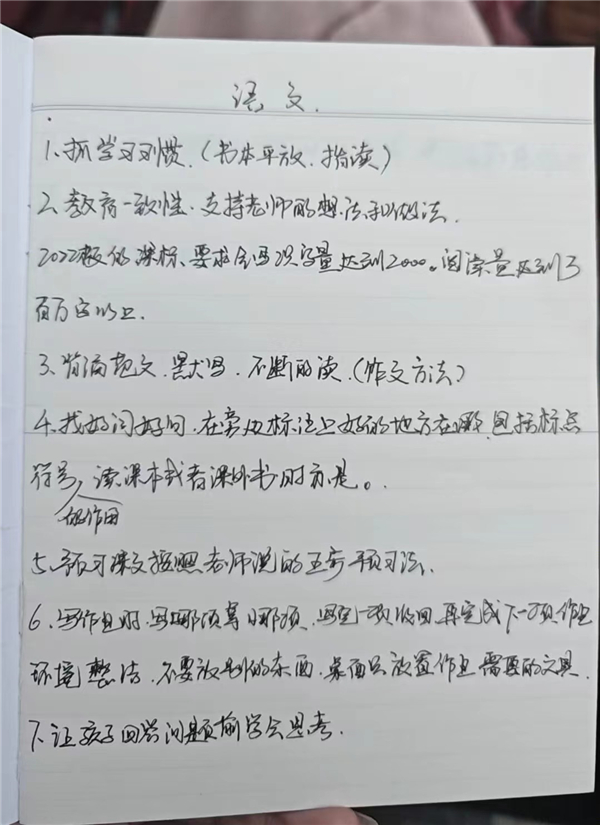 语文.
1、抓学习习惯.(书本平放、指读)
2、教育一致性、支持老师的想法和做法.
2022版的课标、要求会写识字量达到2000。阅读量达到3
百万字以上.
3、背诵范文、默写、不断的读.(作文方法)
4、找好词好句,在旁边标注上好的地方在哪,包括标点
符号,读课本或者课外书时方是。
的作用
5、预习课文按照老师说的五步预习法.
6、写作业时、写哪项拿哪项、写完一项收回再完成下一项作业
环境整洁、不要放别的东西、桌面只放置作业需要的文具.
7、让孩子回答问题前学会思考.